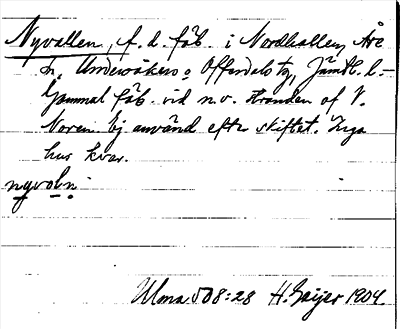 Nyvallen, f. d. fäb. i Nordhallen, Åre
s., Undersåkers o. Offerdals tg, Jämtl. l.
Gammal fäb. vid n.v. stranden af V.
Noren. Ej använd efter skiftet. Inga
hus kvar.
nyvoln
Ulma 508:28 H. Geijer 1904.